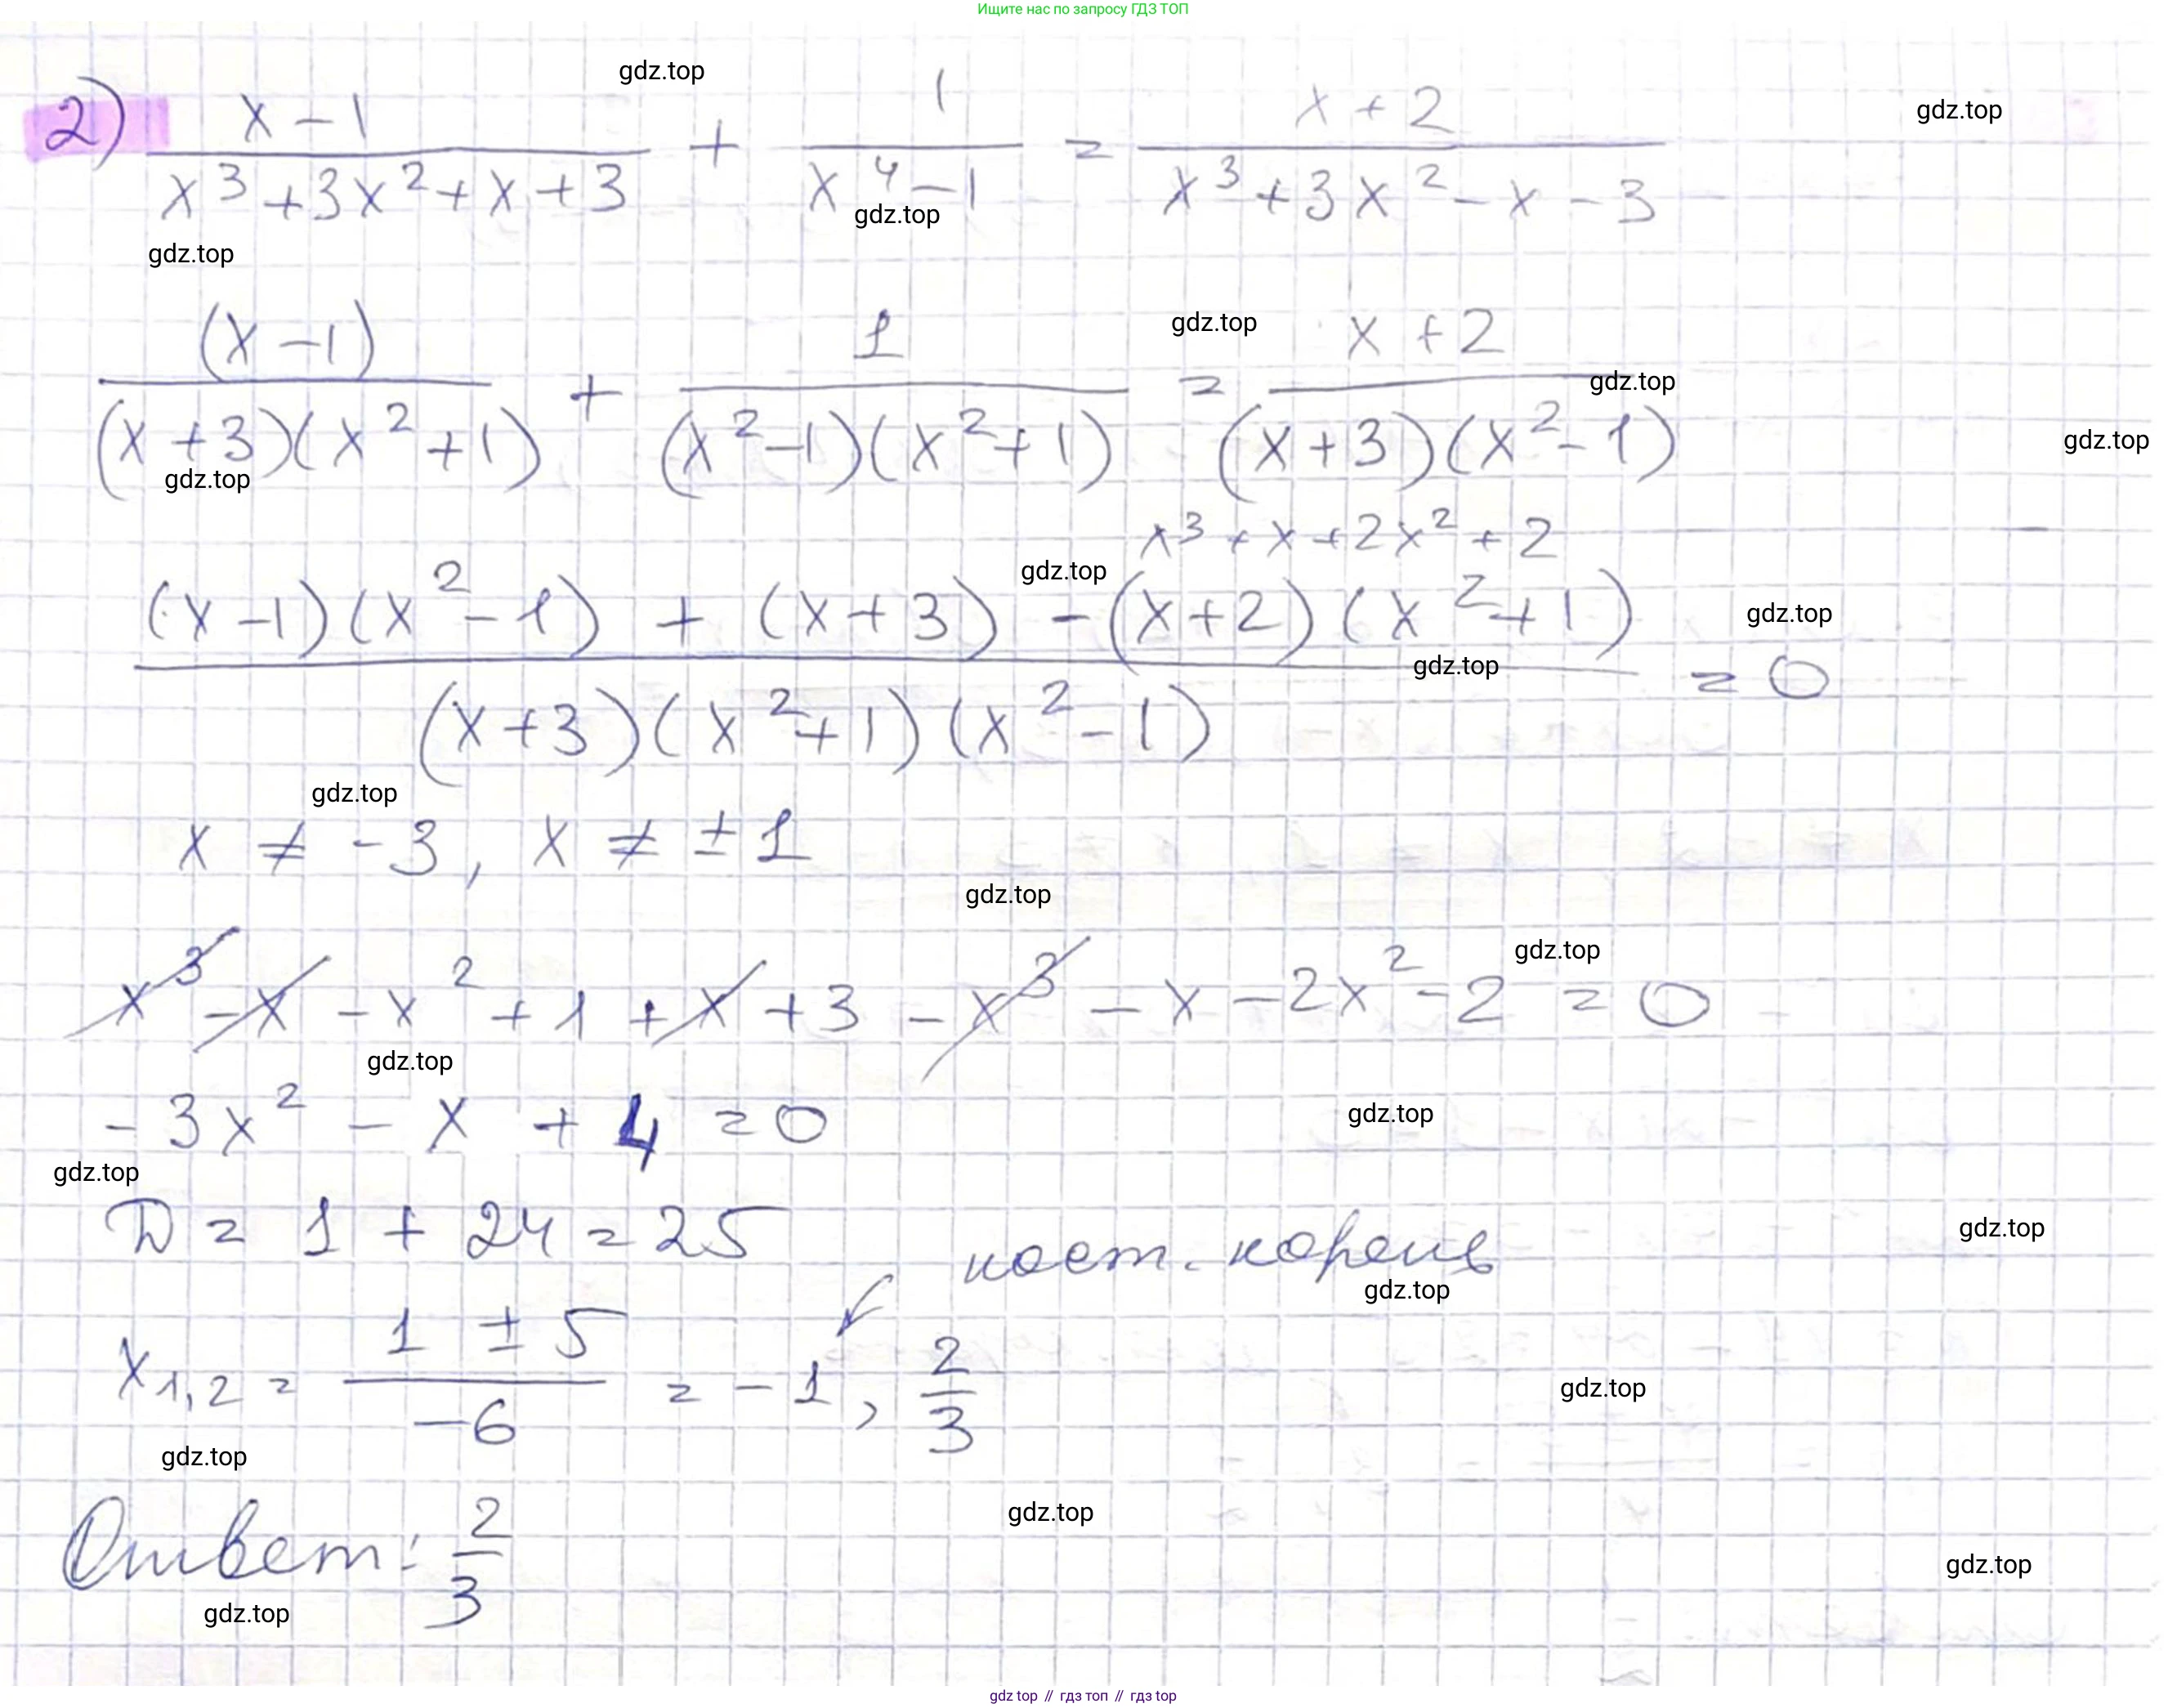 Ищите нас по запросу ГДЗ ТОП
gdz.top
2) (x-1)/(x³+3x²+x+3) + 1/(x⁴-1) = (x+2)/(x³+3x²-x-3)
gdz.top
gdz.top
gdz.top
gdz.top
(x-1)/((x+3)(x²+1)) + 1/((x²-1)(x²+1)) = (x+2)/((x+3)(x²-1))
gdz.top
gdz.top
gdz.top
x³+x+2x²+2
gdz.top
((x-1)(x²-1) + (x+3) - (x+2)(x²+1))/((x+3)(x²+1)(x²-1)) = 0
gdz.top
gdz.top
gdz.top
x ≠ -3, x ≠ ±1
gdz.top
gdz.top
x³ - x - x² + 1 + x + 3 - x³ - x - 2x² - 2 = 0
gdz.top
-3x² - x + 4 = 0
gdz.top
gdz.top
D = 1 + 24 = 25
gdz.top
пост. корень
gdz.top
x1,2 = (1 ± 5)/(-6) = -1, 2/3
gdz.top
gdz.top
gdz.top
Ответ: 2/3
gdz.top
gdz.top
gdz top // гдз топ // гдз top